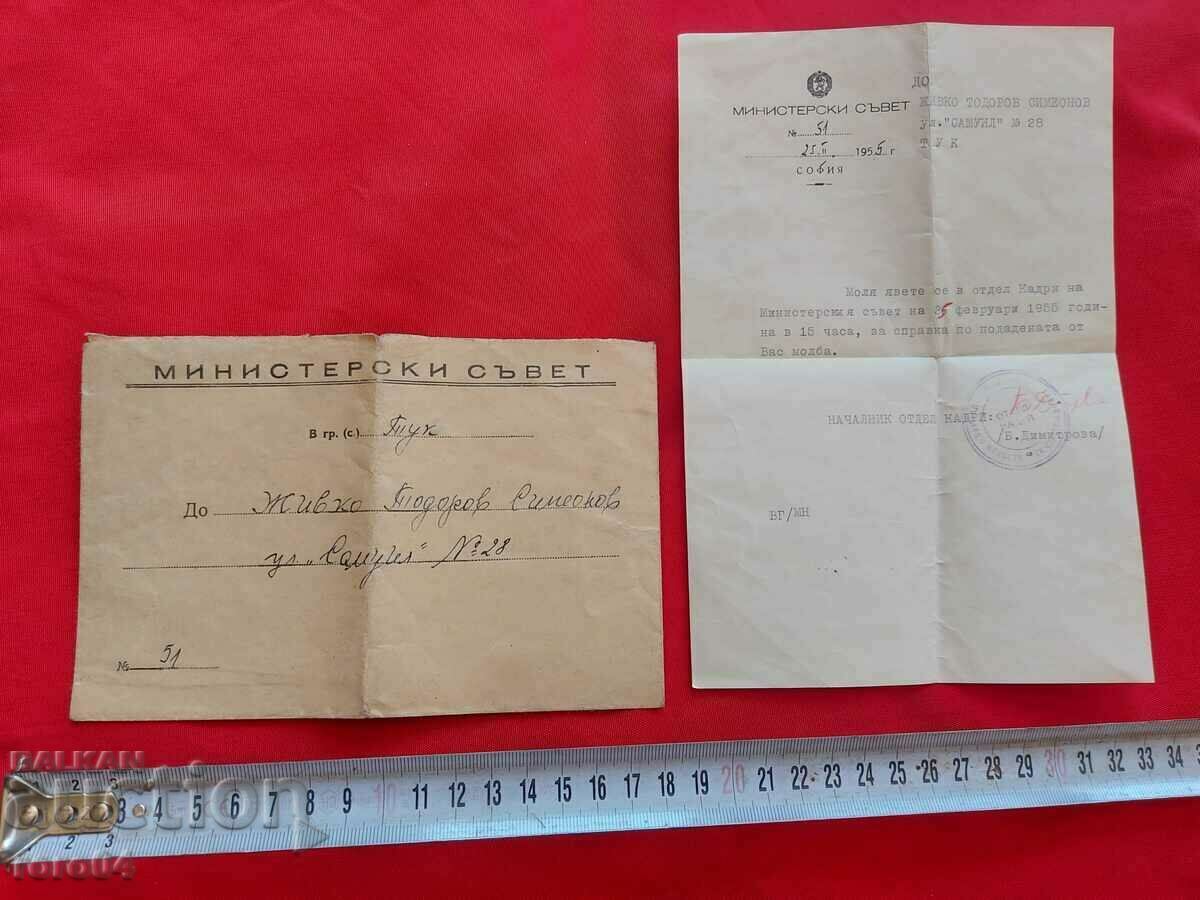 МИНИСТЕРСКИ СЪВЕТ
В гр. (с.) Тук
До Живко Тодоров Симеонов
ул. "Самуил" № 28
№ 51
МИНИСТЕРСКИ СЪВЕТ
№ 51
25.II. 1955 г
СОФИЯ
ДО
ЖИВКО ТОДОРОВ СИМЕОНОВ
ул. "САМУИЛ" № 28
Т У К
Моля явете се в отдел Кадри на
Министерския съвет на 25 февруари 1955 годи-
на в 15 часа, за справка по подадената от
Вас молба.
НАЧАЛНИК ОТДЕЛ КАДРИ:
/Б.Димитрова/
ВГ/МН
1 2 3 4 5 6 7 8 9 10 11 12 13 14 15 16 17 18 19 20 21 22 23 24 25 26 27 28 29 30 31 32 33 34
1 2 3
BALKAN
auction
toro04